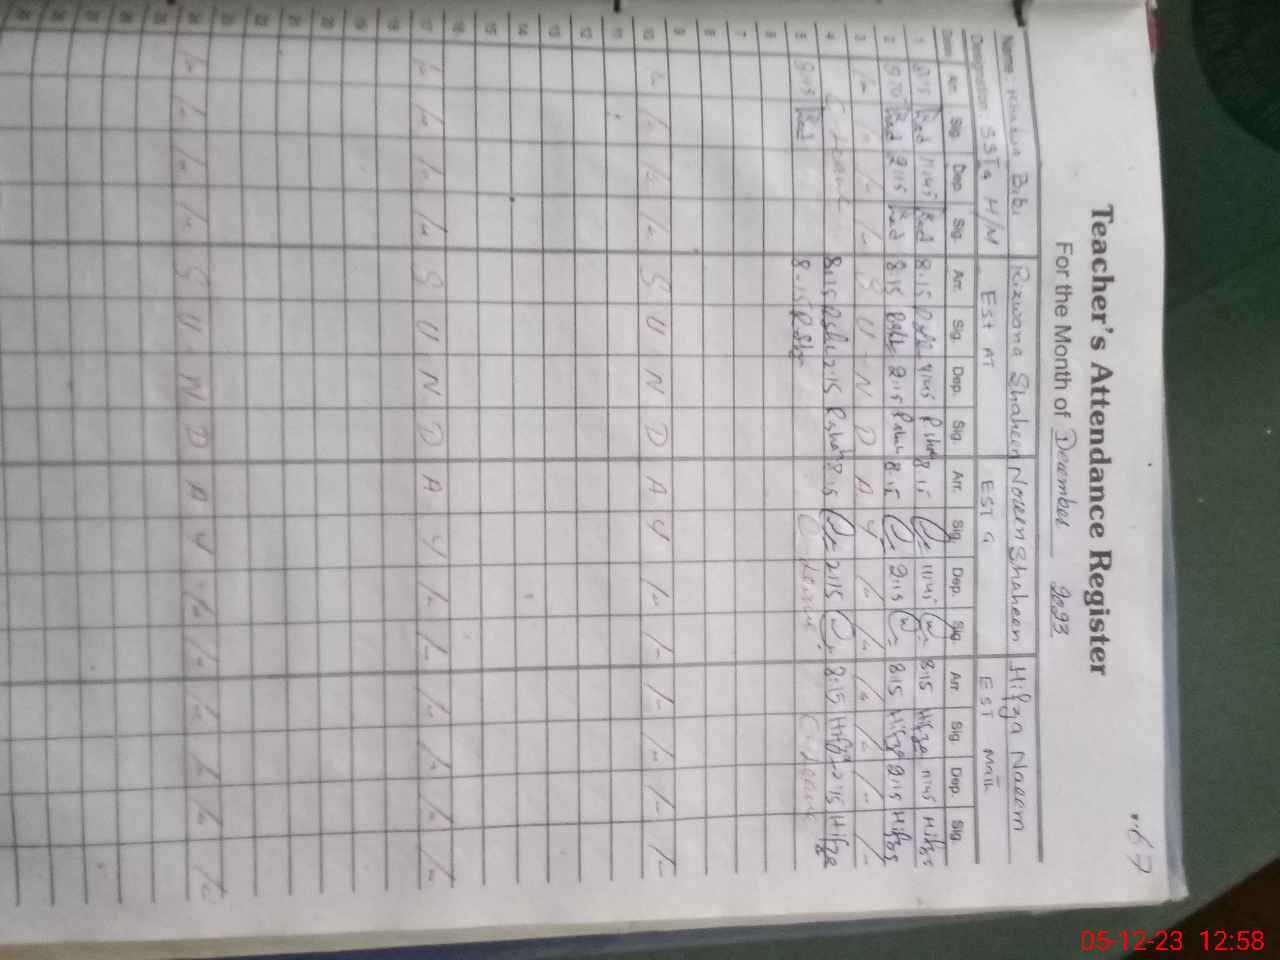 67
Teacher's Attendance Register
For the Month of December 2023
Name: Bibi Rizwana Shaheen Noreen Shaheen Hifza Naeem
Designation: SSTG H/M EST AT EST G EST Math
Date Arr. Sig. Dep. Sig. Arr. Sig. Dep. Sig. Arr. Sig. Dep. Sig. Arr. Sig. Dep. Sig.
1 8:15 11:45 8:15 11:45 8:15 11:45 8:15 Hifza 11:45 Hifza
2 8:15 2:15 8:15 2:15 8:15 2:15 8:15 Hifza 2:15 Hifza
3 S U N D A Y
4 C-Leave 8:15 2:15 8:15 2:15 8:15 Hifza 2:15 Hifza
5 8:15 8:15 C-Leave C-Leave
6
7
8
9
10 S U N D A Y
11
12
13
14
15
16
17 S U N D A Y
18
19
20
21
22
23
24 S U N D A Y
25
26
27
28
05-12-23 12:58